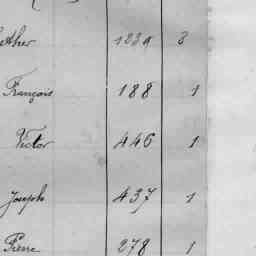 1239 3
François 188 1
Victor 446 1
Joseph 437 1
Pierre 278 1